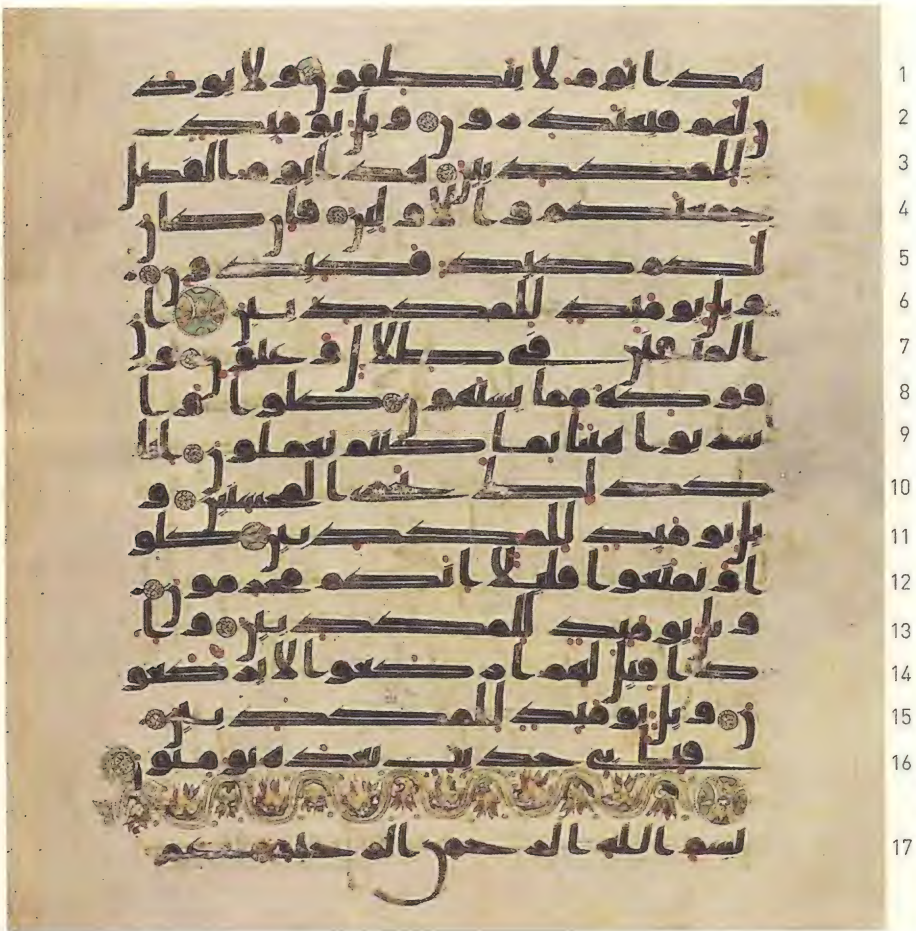 هذا يوم لا ينطقون ولا يوذ 1
ن لهم فيعتذرون ويل يوميذ 2
للمكذبين هذا يوم الفصل 3
جمعنكم والاولين فان كان 4
لكم كيد فكيدون 5
ويل يوميذ للمكذبين ان 6
المتقين في ظلال وعيون و 7
فوكه مما يشتهون كلوا وا 8
شربوا هنيا بما كنتم تعملون انا 9
كذلك نجزي المحسنين و 10
يل يوميذ للمكذبين كلو 11
ا وتمتعوا قليلا انكم مجرمون 12
ويل يوميذ للمكذبين وا 13
ذا قيل لهم اركعوا لا يركعو 14
ن ويل يوميذ للمكذبين 15
فباي حديث بعده يومنون 16
بسم الله الرحمن الرحيم عم 17